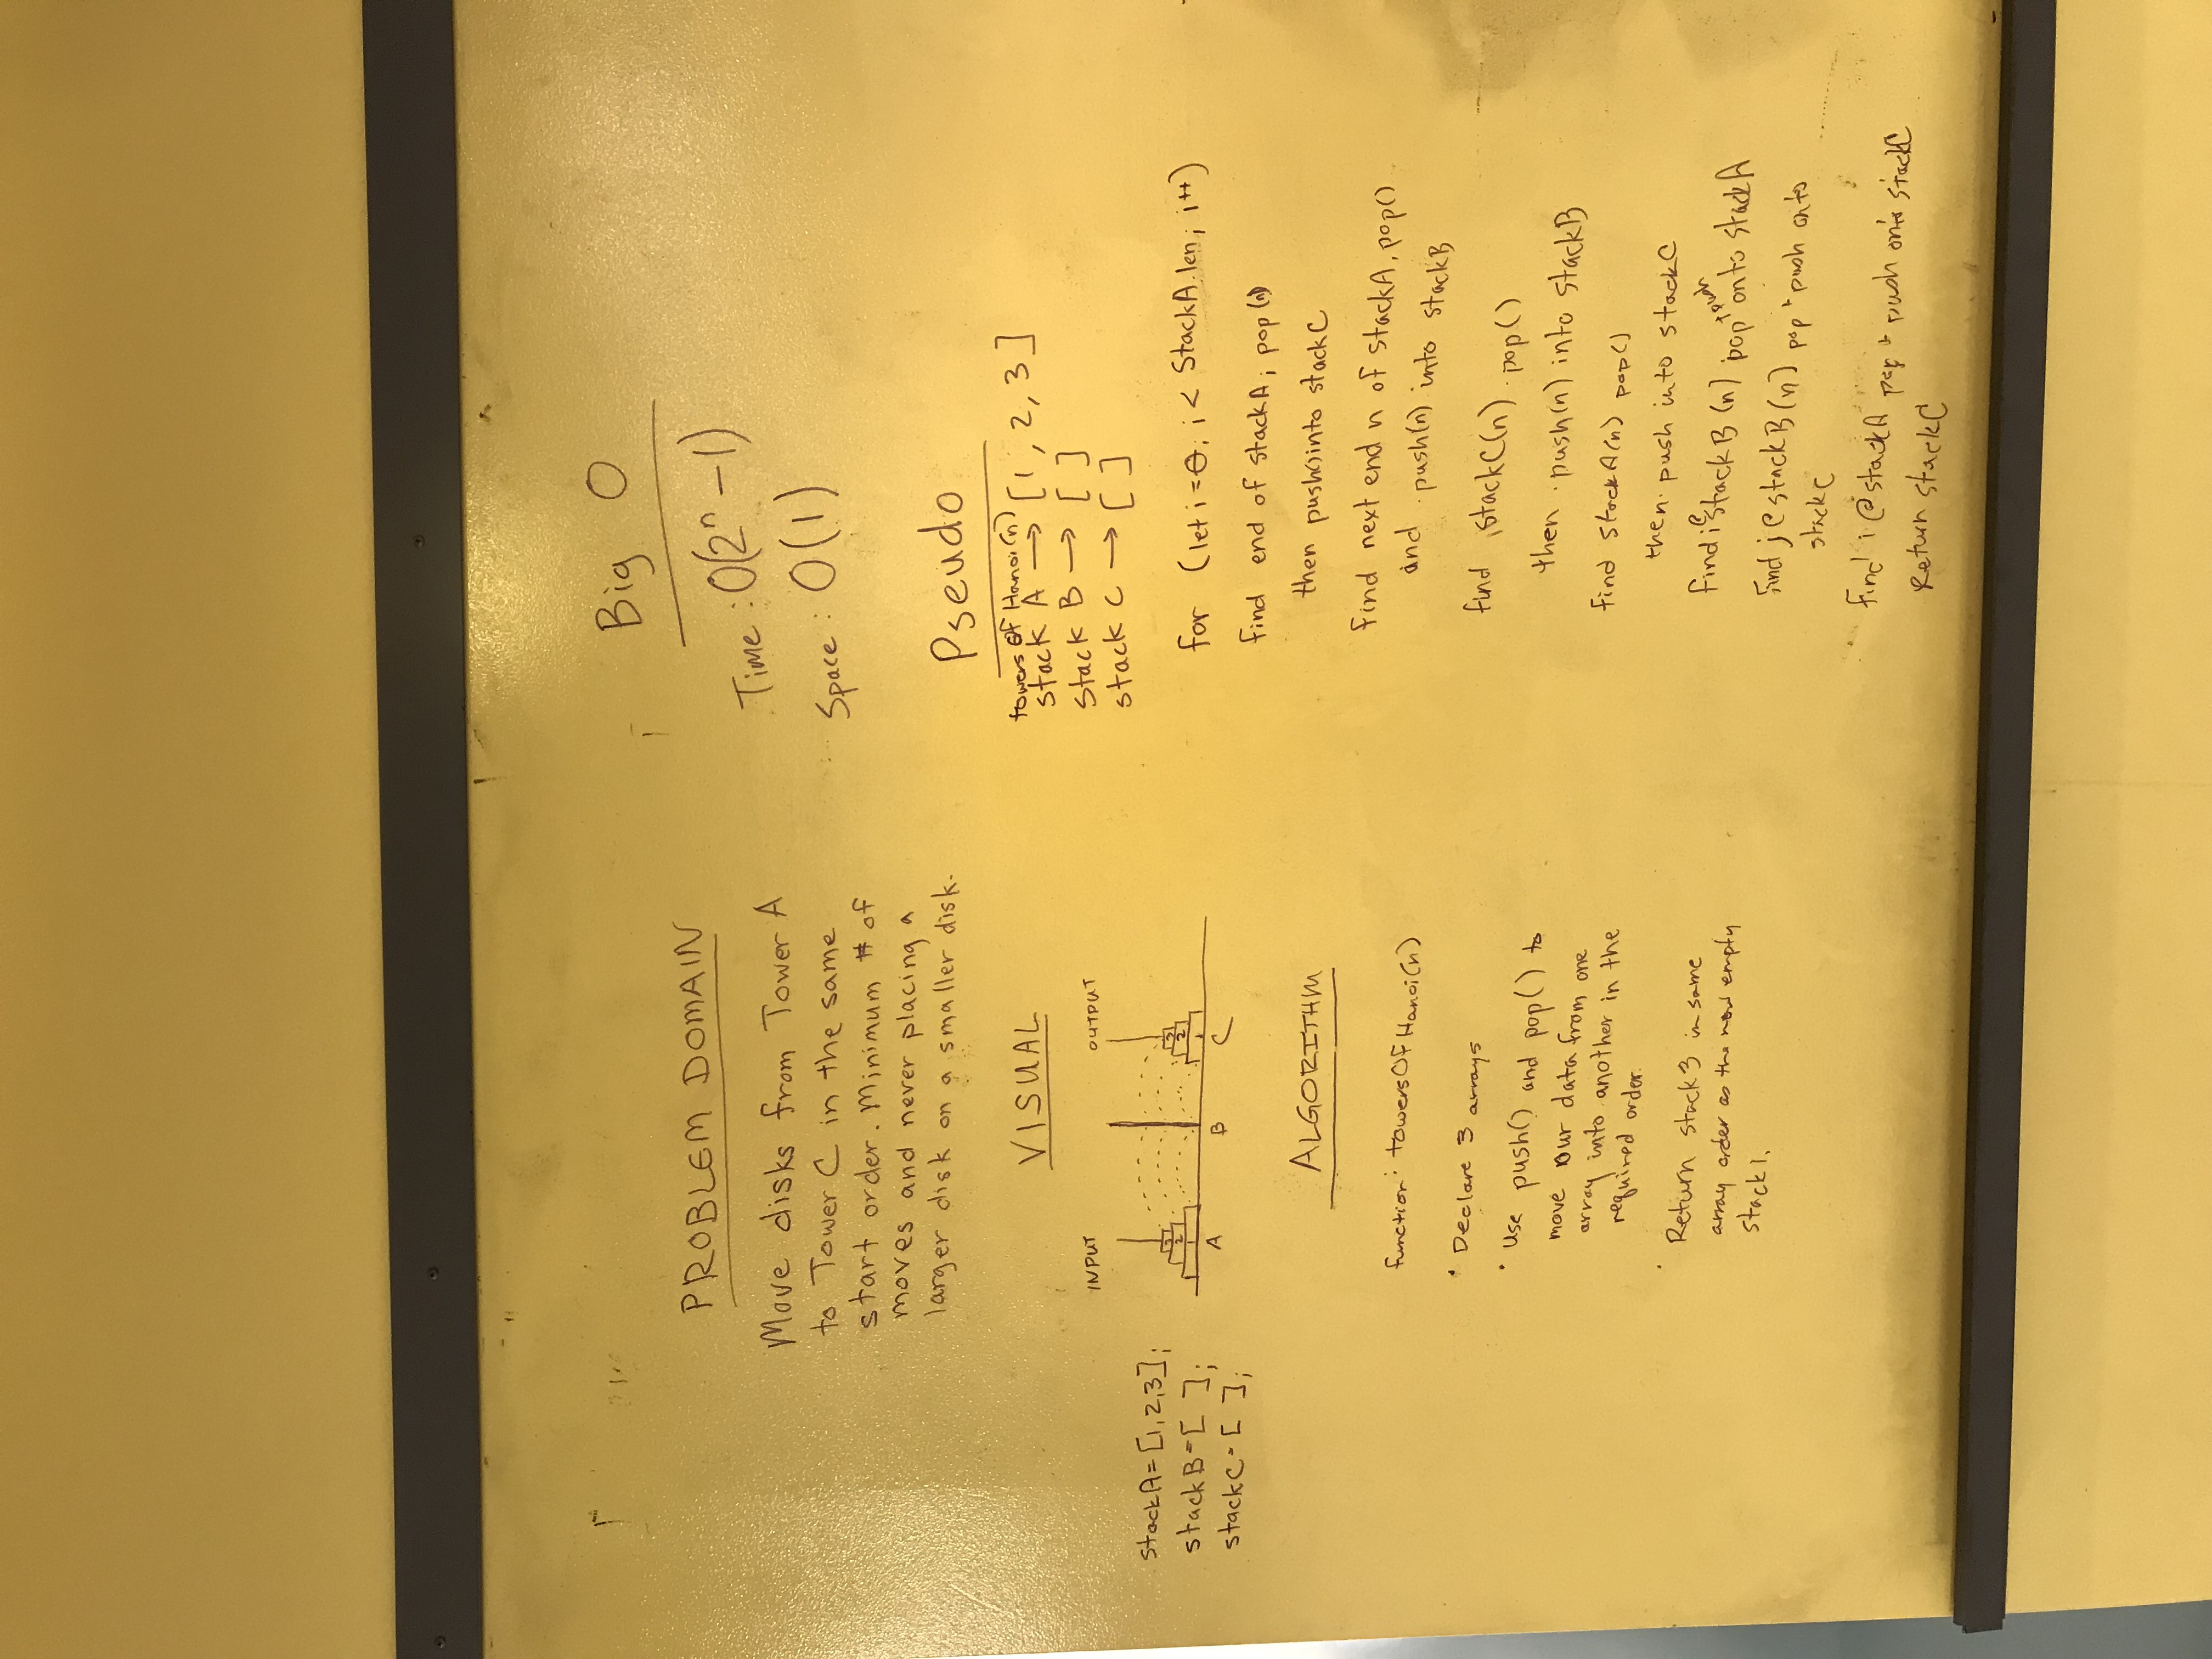 PROBLEM DOMAIN
Move disks from Tower A
to Tower C in the same
start order. Minimum # of
moves and never placing a
larger disk on a smaller disk.
VISUAL
INPUT
OUTPUT
stackA=[1,2,3];
stackB=[ ];
stackC=[ ];
3
2
1
3
2
1
A
B
C
ALGORITHM
function: towersOfHanoi(n)
• Declare 3 arrays
• use push() and pop() to
move our data from one
array into another in the
required order.
• Return stack3 in same
array order as the now empty
stack1.
Big O
Time: O(2ⁿ-1)
Space: O(1)
Pseudo
towersOfHanoi(n)
stack A → [1, 2, 3]
stack B → [ ]
stack C → [ ]
for (let i=0; i< StackA.len; i++)
find end of stackA; pop(n)
then push() into stackC
find next end n of stackA, pop()
and .push(n) into stackB
find stackC(n) .pop()
then .push(n) into stackB
find stackA(n) pop()
then. push into stackC
find i@stackB(n) pop + push onto stackA
find j@stackB(n) pop + push onto
stackC
find i @stackA pop + push onto stackC
Return stackC